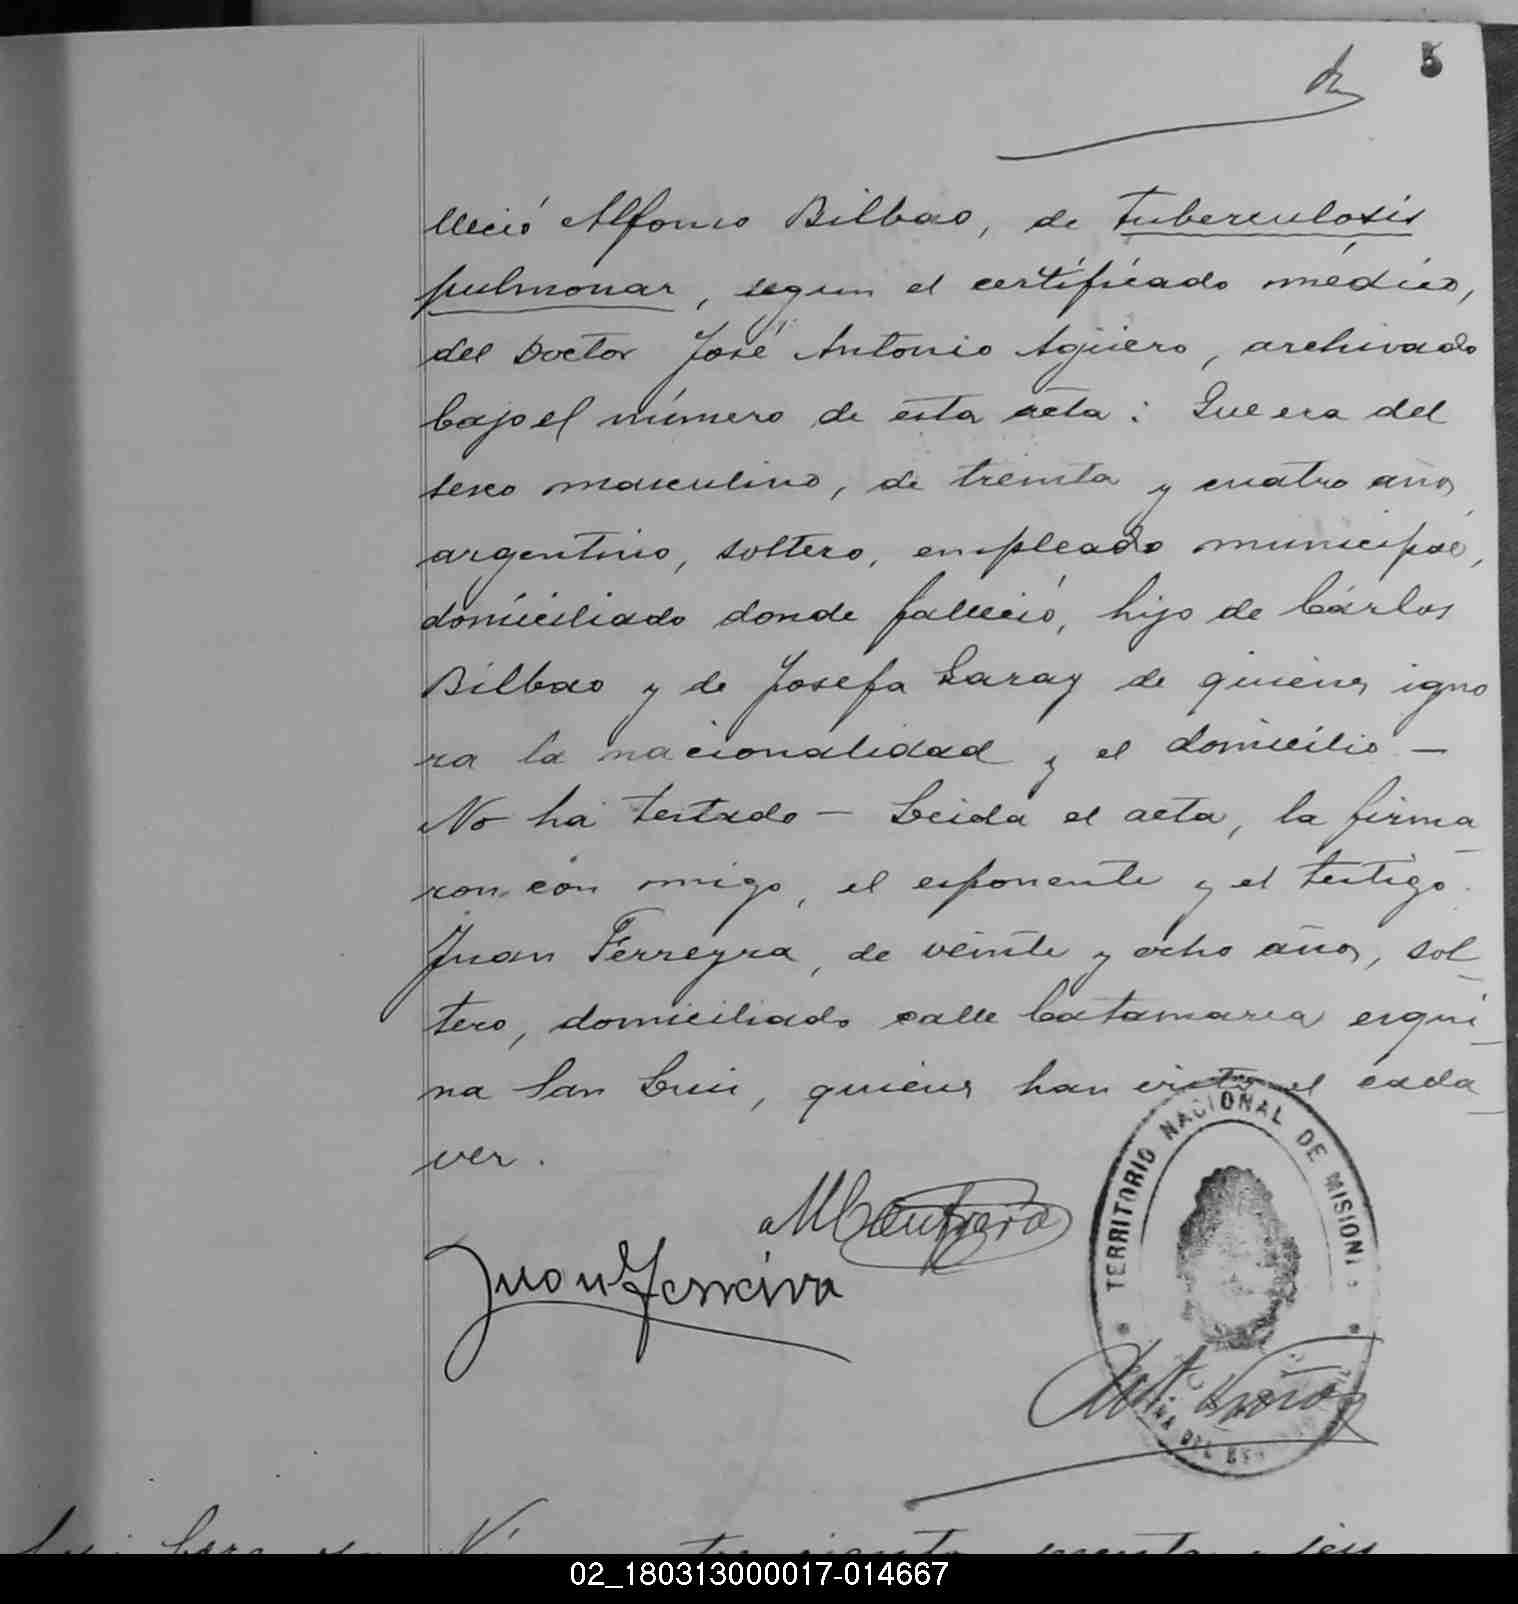 5
lleció Alfonso Bilbao, de tuberculosis
pulmonar, segun el certificado médico,
del Doctor José Antonio Agüero, archivado
bajo el número de esta acta: Que era del
sexo masculino, de treinta y cuatro años
argentino, soltero, empleado municipal,
domiciliado donde falleció, hijo de Cárlos
Bilbao y de Josefa Garay de quienes igno
ra la nacionalidad y el domicilio —
No ha testado — Leida el acta, la firma
ron con migo, el esponente y el testigo
Juan Ferreyra, de veinte y ocho años, sol
tero, domiciliado calle Catamarca esqui
na San Luis, quienes han visto el cada
ver.
Juan Ferreira
TERRITORIO NACIONAL DE MISION
02_180313000017-014667